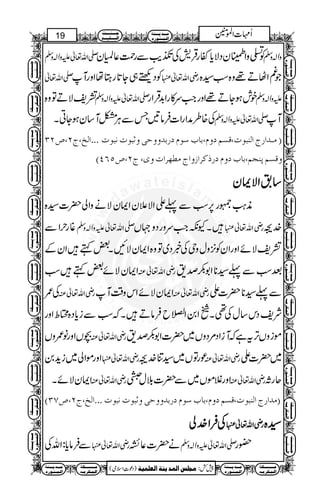 اُمہات المؤمنین
19
والہٖ وسلم کو تسلی و اطمینان دلایا۔ کفار قریش کی تکذیب سے رحمت عالمیان صلی اللہ تعالیٰ علیہ والہٖ وسلم
جو غم اٹھاتے تھے وہ سب سیدہ رضی اللہ تعالیٰ عنہا کو دیکھتے ہی جاتا رہتا تھا اور آپ صلی اللہ تعالیٰ
علیہ والہٖ وسلم خوش ہو جاتے تھے اور جب سرکار ابد قرار صلی اللہ تعالیٰ علیہ والہٖ وسلم تشریف لاتے تو وہ
آپ صلی اللہ تعالیٰ علیہ والہٖ وسلم کی خاطر مدارات فرماتیں جس سے ہر مشکل آسان ہو جاتی۔
(مدارج النبوت، قسم دوم، باب سوم دربدووحی وثبوت نبوت ...الخ، ج ۲، ص ۳۲
وقسم پنجم، باب دوم درذکرازواج مطهرات وی، ج ۲، ص ٤٦٥)
سابق الایمان
مذہب جمہور پر سب سے پہلے علی الاعلان ایمان لانے والی حضرت سیدہ
خدیجہ رضی اللہ تعالیٰ عنہا ہیں۔ کیونکہ جب سرور دو جہاں صلی اللہ تعالیٰ علیہ والہٖ وسلم غار حرا سے
تشریف لائے اور ان کو نزول وحی کی خبر دی تو وہ ایمان لائیں۔ بعض کہتے ہیں ان کے
بعد سب سے پہلے سیدنا ابوبکر صدیق رضی اللہ تعالیٰ عنہ ایمان لائے بعض کہتے ہیں سب
سے پہلے سیدنا حضرت علی رضی اللہ تعالیٰ عنہ ایمان لائے اس وقت آپ رضی اللہ تعالیٰ عنہ کی عمر
شریف دس سال کی تھی۔ شیخ ابن الصلاح فرماتے ہیں۔ کہ سب سے زیادہ محتاط اور
موزوں تر یہ ہے کہ آزاد مردوں میں حضرت ابوبکر صدیق رضی اللہ تعالیٰ عنہ بچوں اور نوعمروں
میں حضرت علی رضی اللہ تعالیٰ عنہ عورتوں میں سیدتنا خدیجہ رضی اللہ تعالیٰ عنہا اور موالی میں زید بن
حارثہ رضی اللہ تعالیٰ عنہ اور غلاموں میں سے حضرت بلال حبشی رضی اللہ تعالیٰ عنہ ایمان لائے۔
(مدارج النبوت، قسم دوم، باب سوم دربدووحی وثبوت نبوت ...الخ، ج ۲، ص ۳۷)
سیدہ رضی اللہ تعالیٰ عنہا کی فراخدلی
حضور صلی اللہ تعالیٰ علیہ والہٖ وسلم نے حضرت عائشہ رضی اللہ تعالیٰ عنہا سے فرمایا: اللہ کی
پیش کش: مجلس المدینة العلمية (دعوت اسلامی)